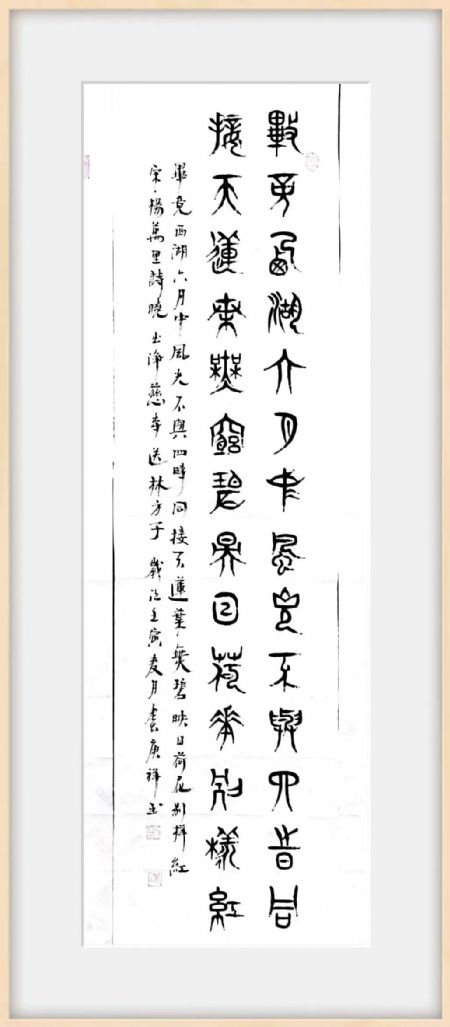 畢竟西湖六月中風光不與四時同
接天蓮葉無窮碧映日荷花別樣紅
畢竟西湖六月中風光不與四時同接天蓮葉無碧映日荷花別樣紅
宋·楊萬里詩曉出淨慈寺送林方子 歲次壬寅夏月庚祥書